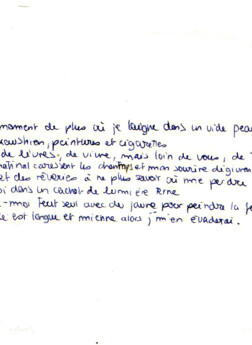 moment de plus où je longe dans un vide
peintures et cigarettes
de livres, de vivre, mais loin de vous, de
caressent les champs et mon sourire dégivran
et des rêveries à ne plus savoir où me perdre
oi dans un cachot de lumière
-moi tout seul avec du jaune pour peindre la
est longue et mienne alors j'm'en évaderai.